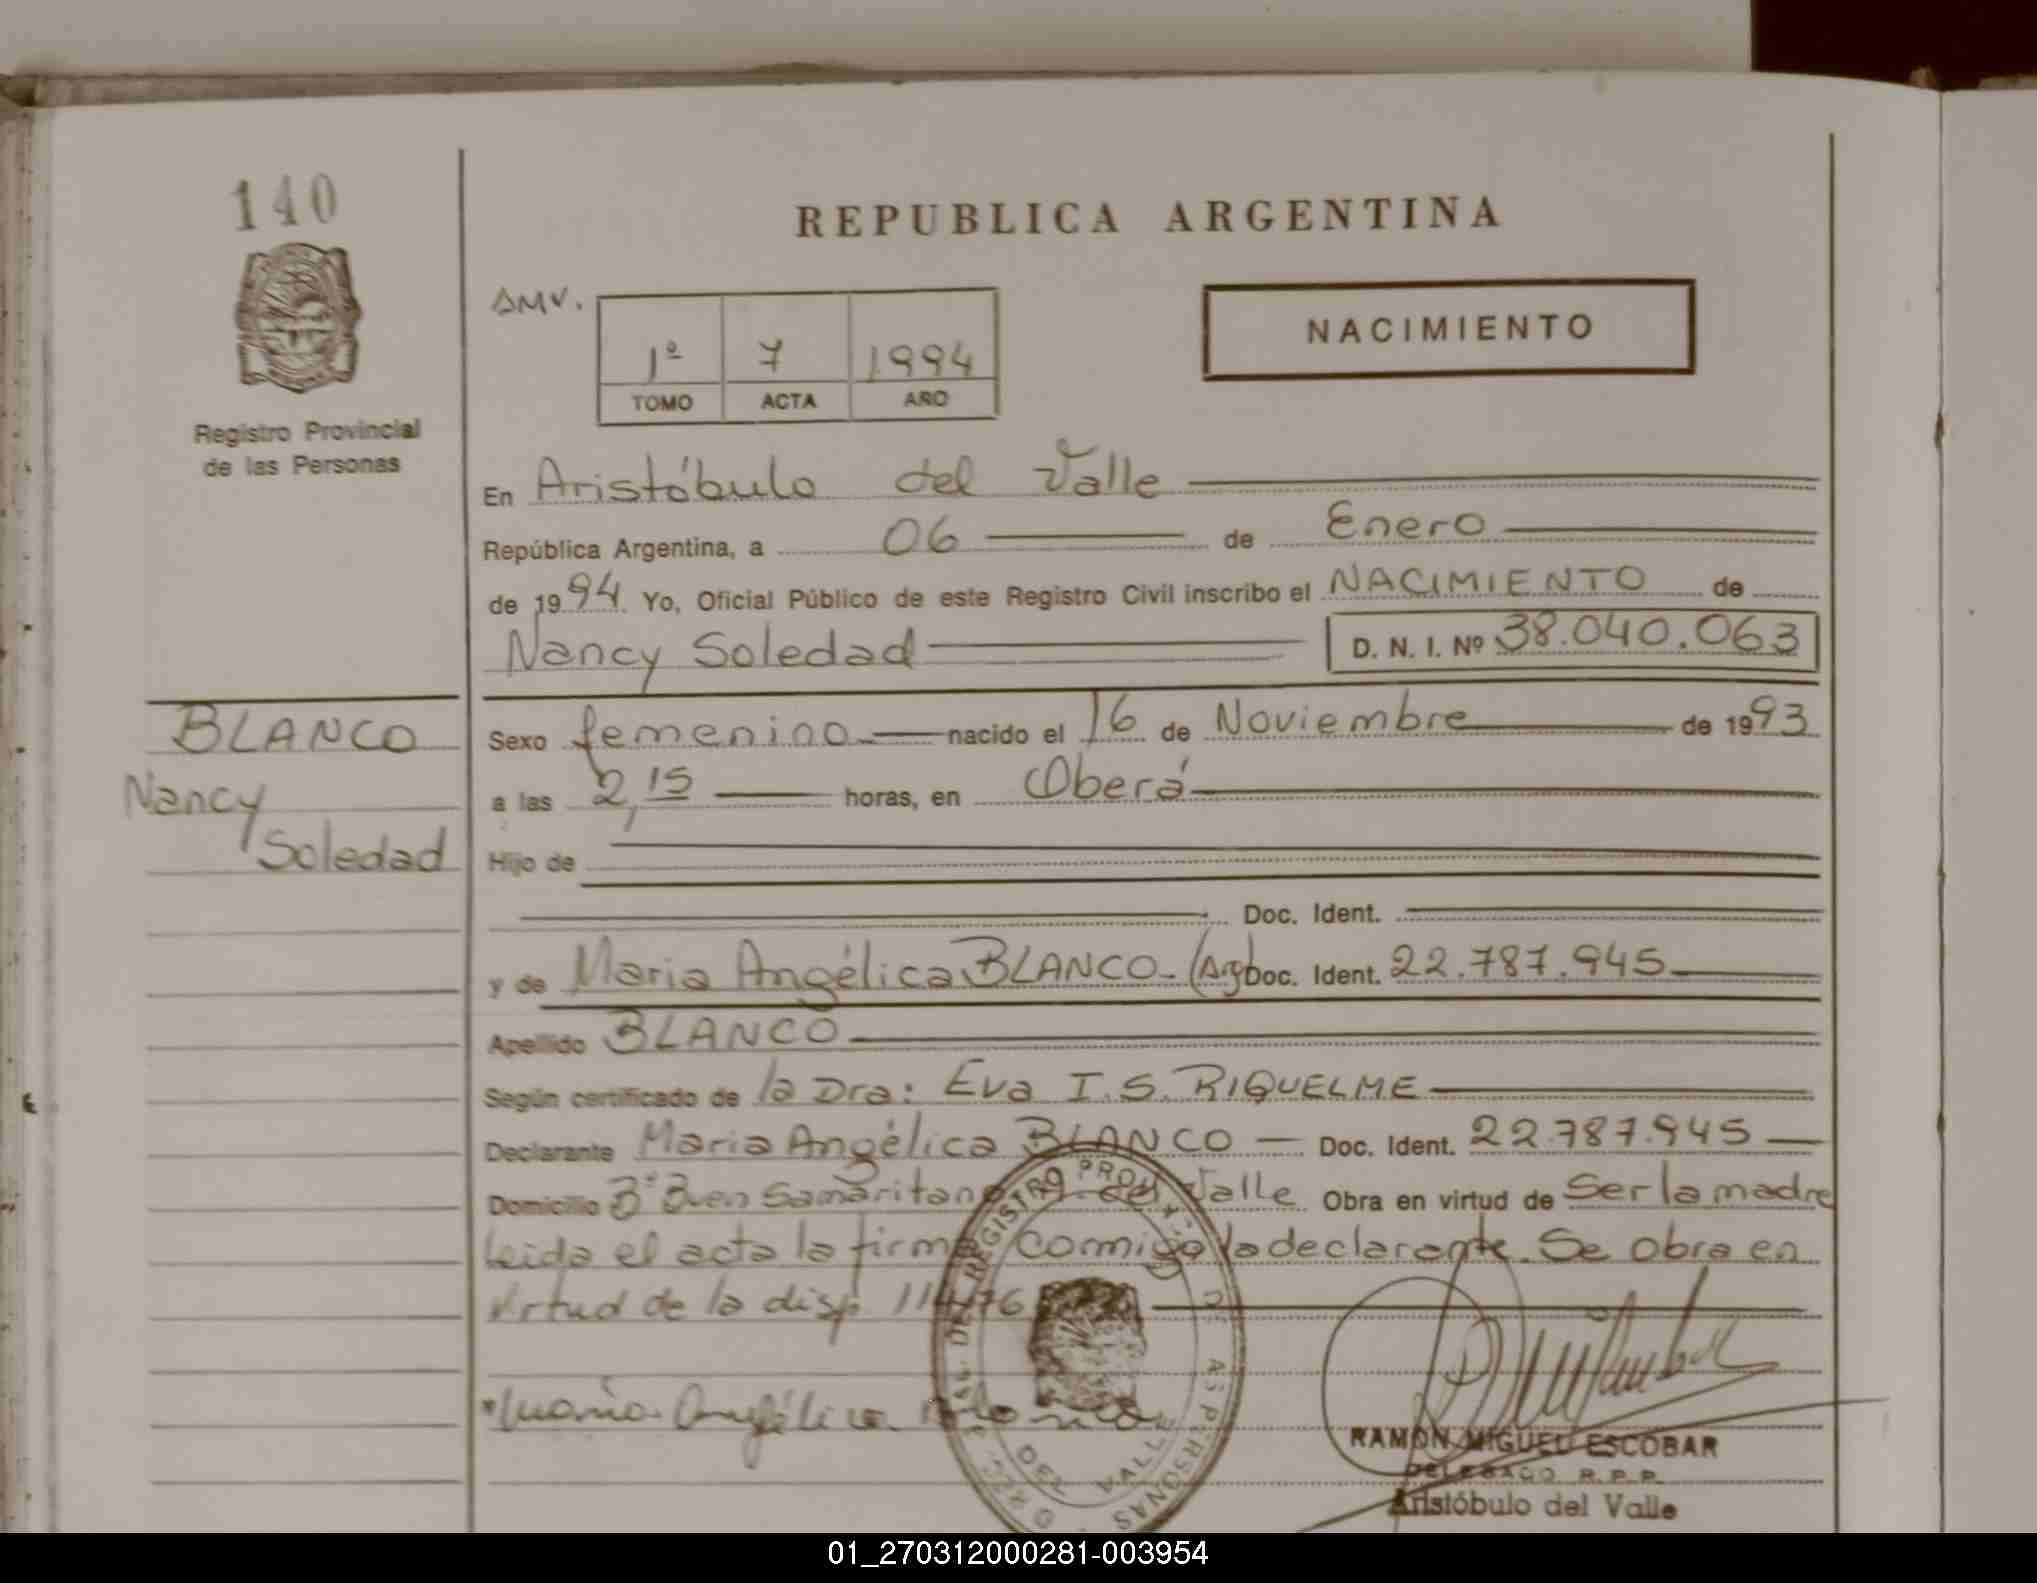 140
REPUBLICA ARGENTINA
AMV.
1º 7 1994
TOMO ACTA AÑO
NACIMIENTO
Registro Provincial
de las Personas
En Aristóbulo del Valle
República Argentina, a 06 de Enero
de 1994 Yo, Oficial Público de este Registro Civil inscribo el NACIMIENTO de
Nancy Soledad D. N. I. Nº 38.040.063
BLANCO
Nancy
Soledad
Sexo femenino nacido el 16 de Noviembre de 1993
a las 2,15 horas, en Oberá
Hijo de
Doc. Ident.
y de Maria Angélica BLANCO - (Arg) Doc. Ident. 22.787.945
Apellido BLANCO
Según certificado de la Dra: Eva I. S. RIQUELME
Declarante Maria Angélica BLANCO Doc. Ident. 22.787.945
Domicilio Bº Buen Samaritano A. del Valle Obra en virtud de Ser la madre
Leida el acta la firma conmigo la declarante. Se obra en
virtud de la disp.
Maria Angélica Blanco
REGISTRO PROV. DE LAS PERSONAS
DEL VALLE
RAMON MIGUEL ESCOBAR
DELEGADO R. P. P.
Aristóbulo del Valle
01_270312000281-003954